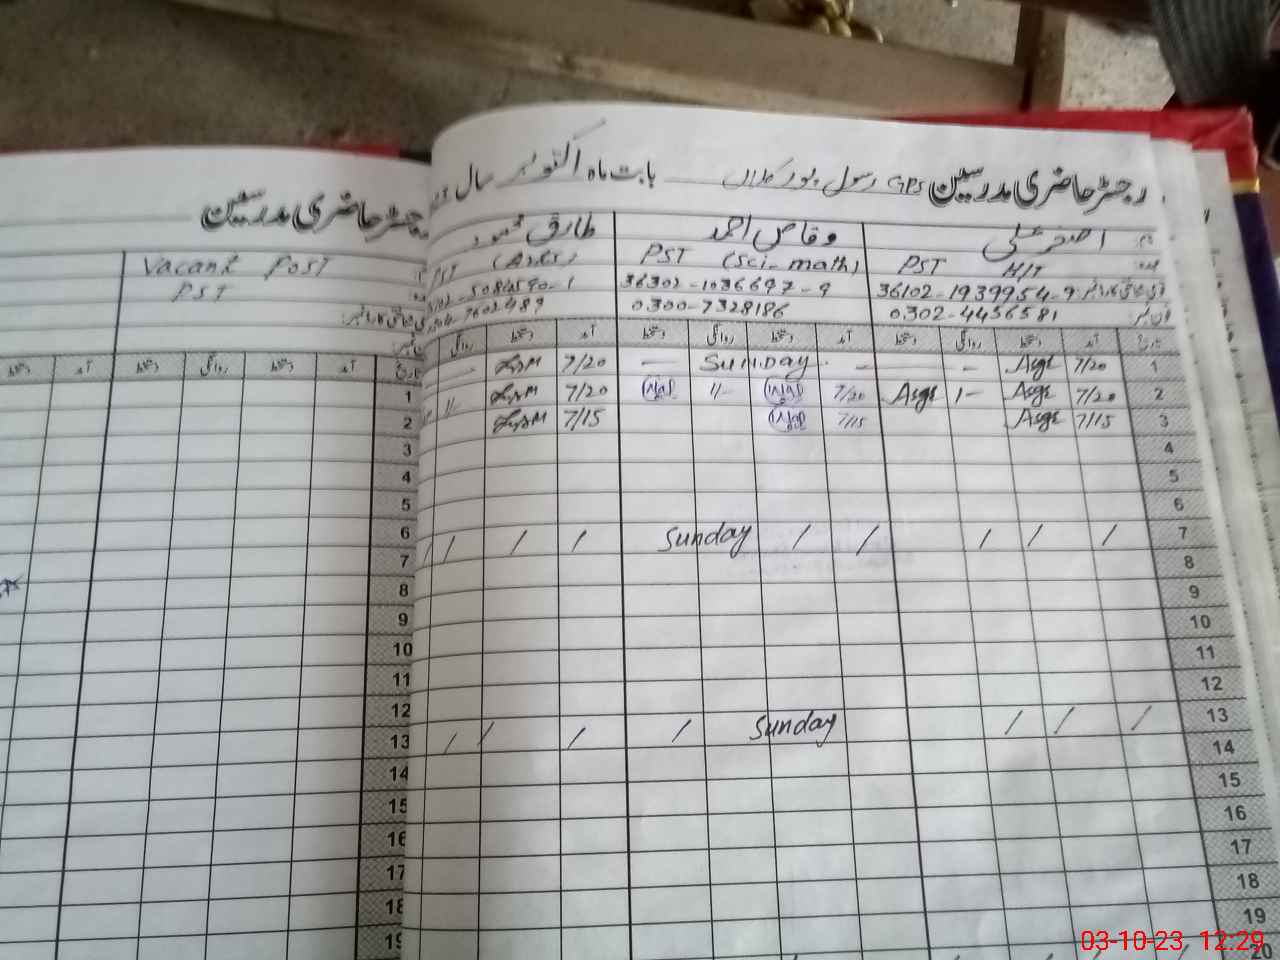 رجسٹر حاضری مدرسین GPS رسول پور کلاں بابت ماہ اکتوبر سال
اصغر علی
PST H/T
36102-1939954-9
0302-4456581
وقاص احمد
PST (Sci-math)
36302-1036697-9
0300-7328186
طارق محمود
PST (Arts)
7602489
تاریخ آمد دستخط روانگی دستخط آمد دستخط روانگی دستخط آمد دستخط روانگی
1 7/20 Asgr - - Sunday - 7/20
2 7/20 Asgr 1- Asgr 7/20 11- 7/20 11-
3 7/15 Asgr 7/15 7/15
4
5
6
7 / / / / / Sunday / / / /
8
9
10
11
12
13 / / / Sunday / / / /
14
15
16
17
18
19
20
رجسٹر حاضری مدرسین
Vacant Post
PST
تاریخ دستخط روانگی دستخط آمد دستخط
1
2
3
4
5
6
7
8
9
10
11
12
13
14
15
16
17
18
19
03-10-23, 12:29